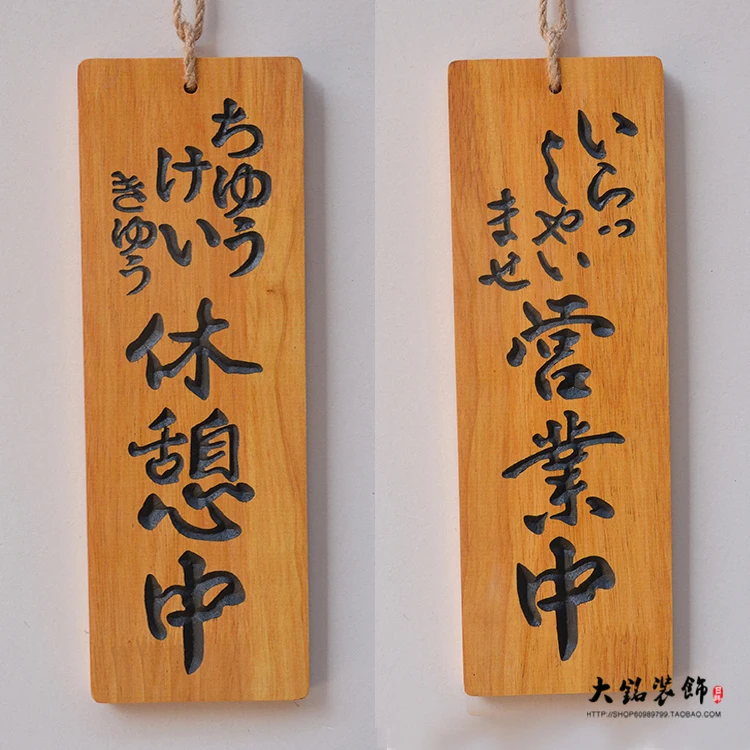 ちゆう
けい
きゆう
休憩中
いらっ
しゃい
ませ
営業中
大銘装飾
HTTP://SHOP60989799.TAOBAO.COM